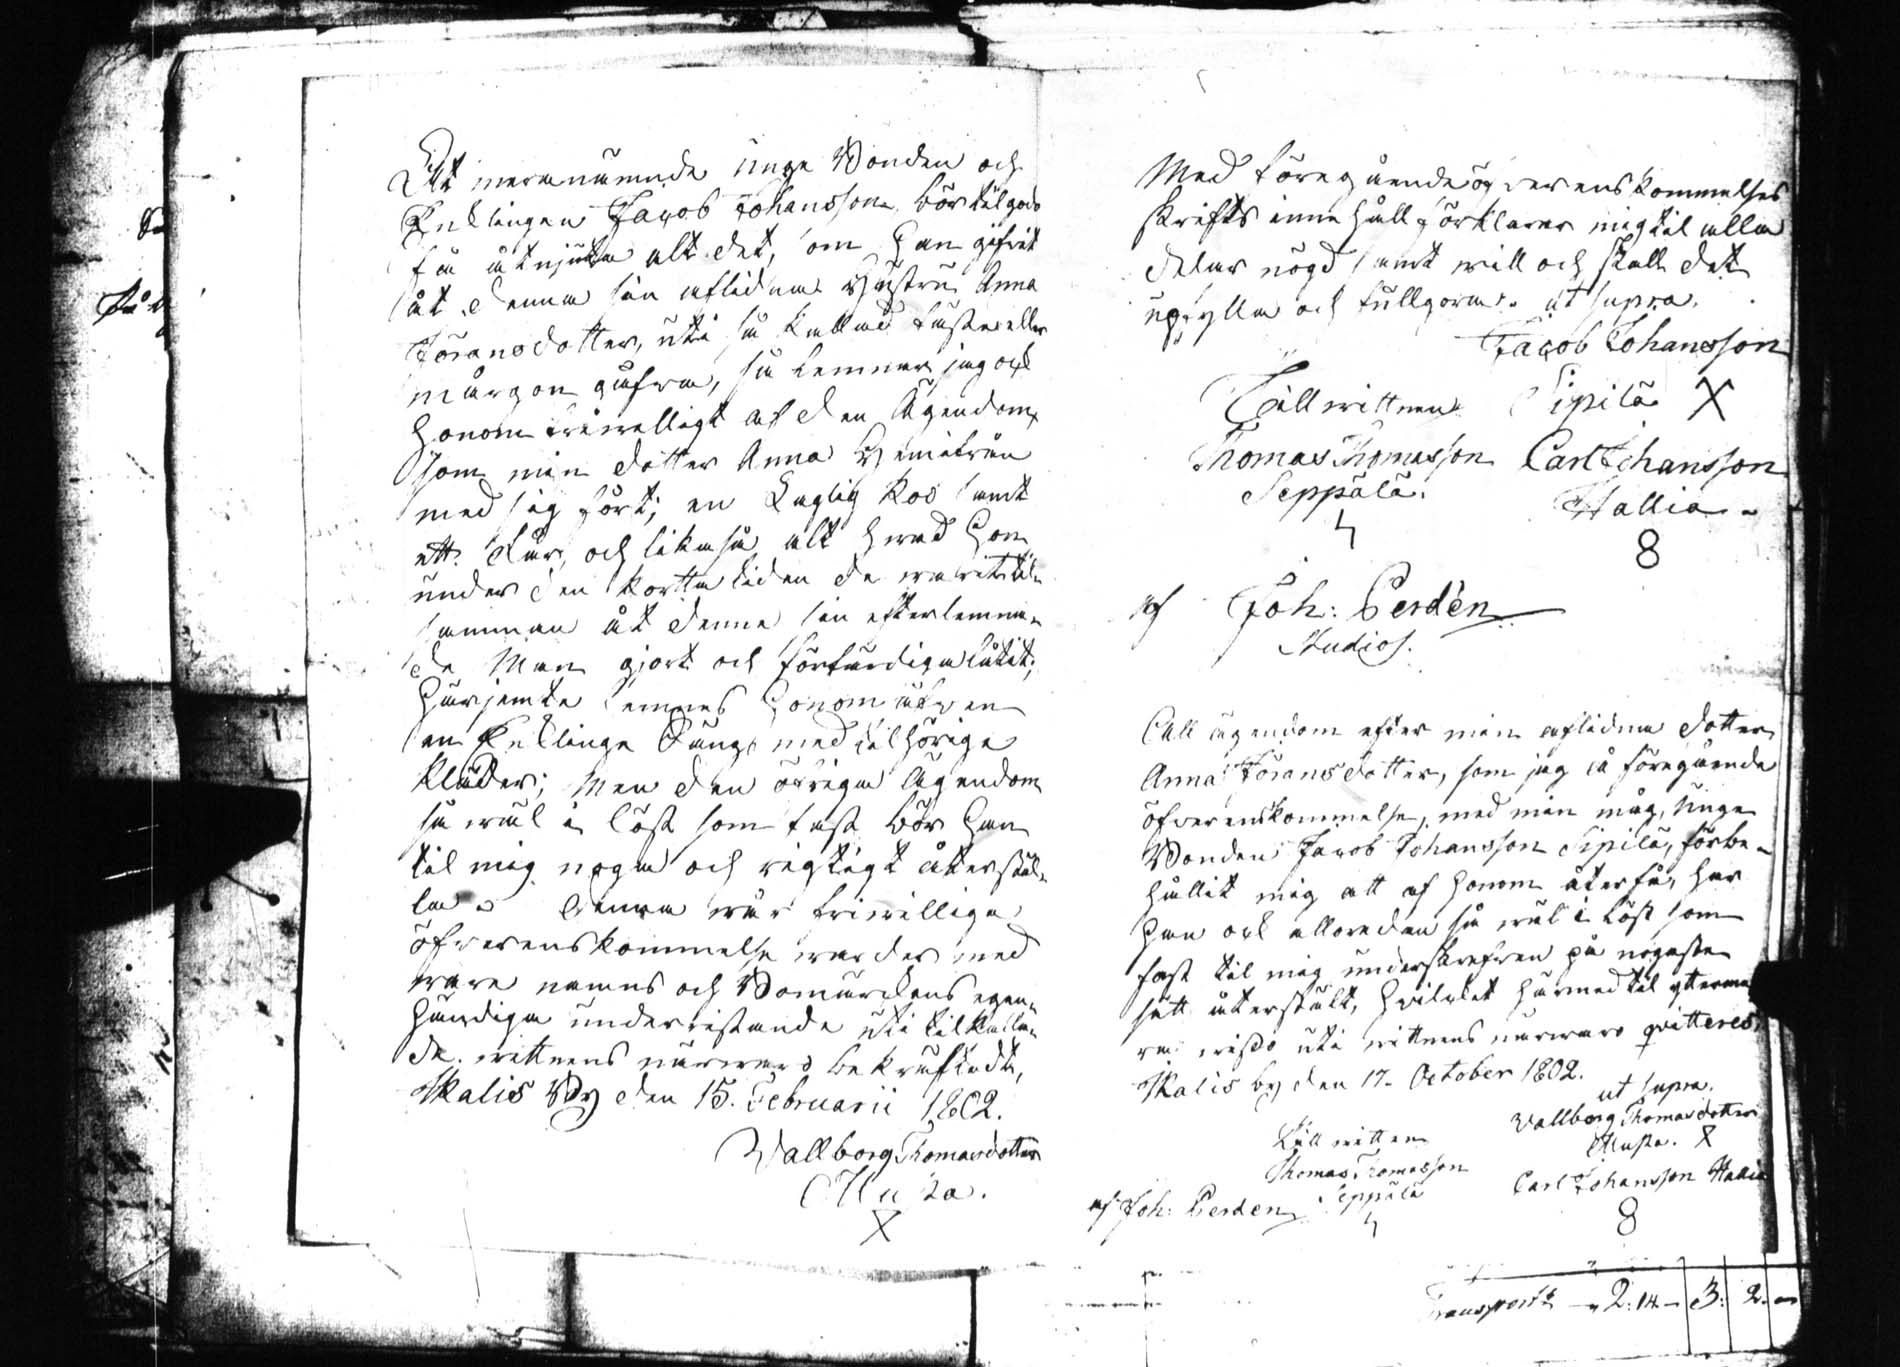 Att meranämnde unge Bonden och
Enklingen Jacob Johansson bör tilgodo
få åtnjuta alt det, som han gifvit
åt denna sin aflidna Hustru Anna
Jöransdotter, uti så kallad fäste eller
morgon gåfva, så lemnar jag ock
honom friwilligt af den Ägendom,
som min dotter Anna hemifrån
med sig fört; en duglig Koo samt
ett får, och likaså alt hwad hon
under den korta tiden de warit til-
samman åt denna sin efterlemna-
de Man gjort och förfärdiga låtit;
härjemte lemnas honom äfven
en Enklinge Säng med tilhörige
kläder; Men den öfriga Ägendom
så wäl i löst som fast bör han
til mig noga och rigtigt återstäl-
la. Denna wår friwilliga
öfverenskommelse warder med
wåre namns och Bomärkens egen-
händiga underristande uti tilkalla-
de wittnens närwaro bekräftadt,
Skalis By den 15. Februarii 1802.
Wallborg Thomasdotter
X
Med föregående öfverenskommelses
skrifts innehåll förklarar mig til alla
delar nögd samt will och skall det
upfylla och fullgöra. ut supra.
Jacob Johansson
Till wittnen Sipilä X
Thomas Thomasson Carl Johansson
Seppälä. Hallia
8
af Joh: Perdén
Studios.
All ägendom efter min aflidna dotter
Anna Jöransdotter, som jag i föregående
öfverenskommelse, med min måg, Unge
Bonden Jacob Johansson Sipilä, förbe-
hållit mig att af honom återfå, har
han ock alloredan så wäl i löst som
fast til mig underskrefven på nogaste
sätt återstält, hvilket härmed til yterme
ra wisso uti wittnens närwaro qvitteres,
Skalis by den 17. October 1802.
ut supra.
Wallborg Thomasdotter
X
Till wittnen
Thomas Thomasson
Seppälä
Carl Johansson Hallia
8
af Joh: Perden
Transport 2:14 3: 2.